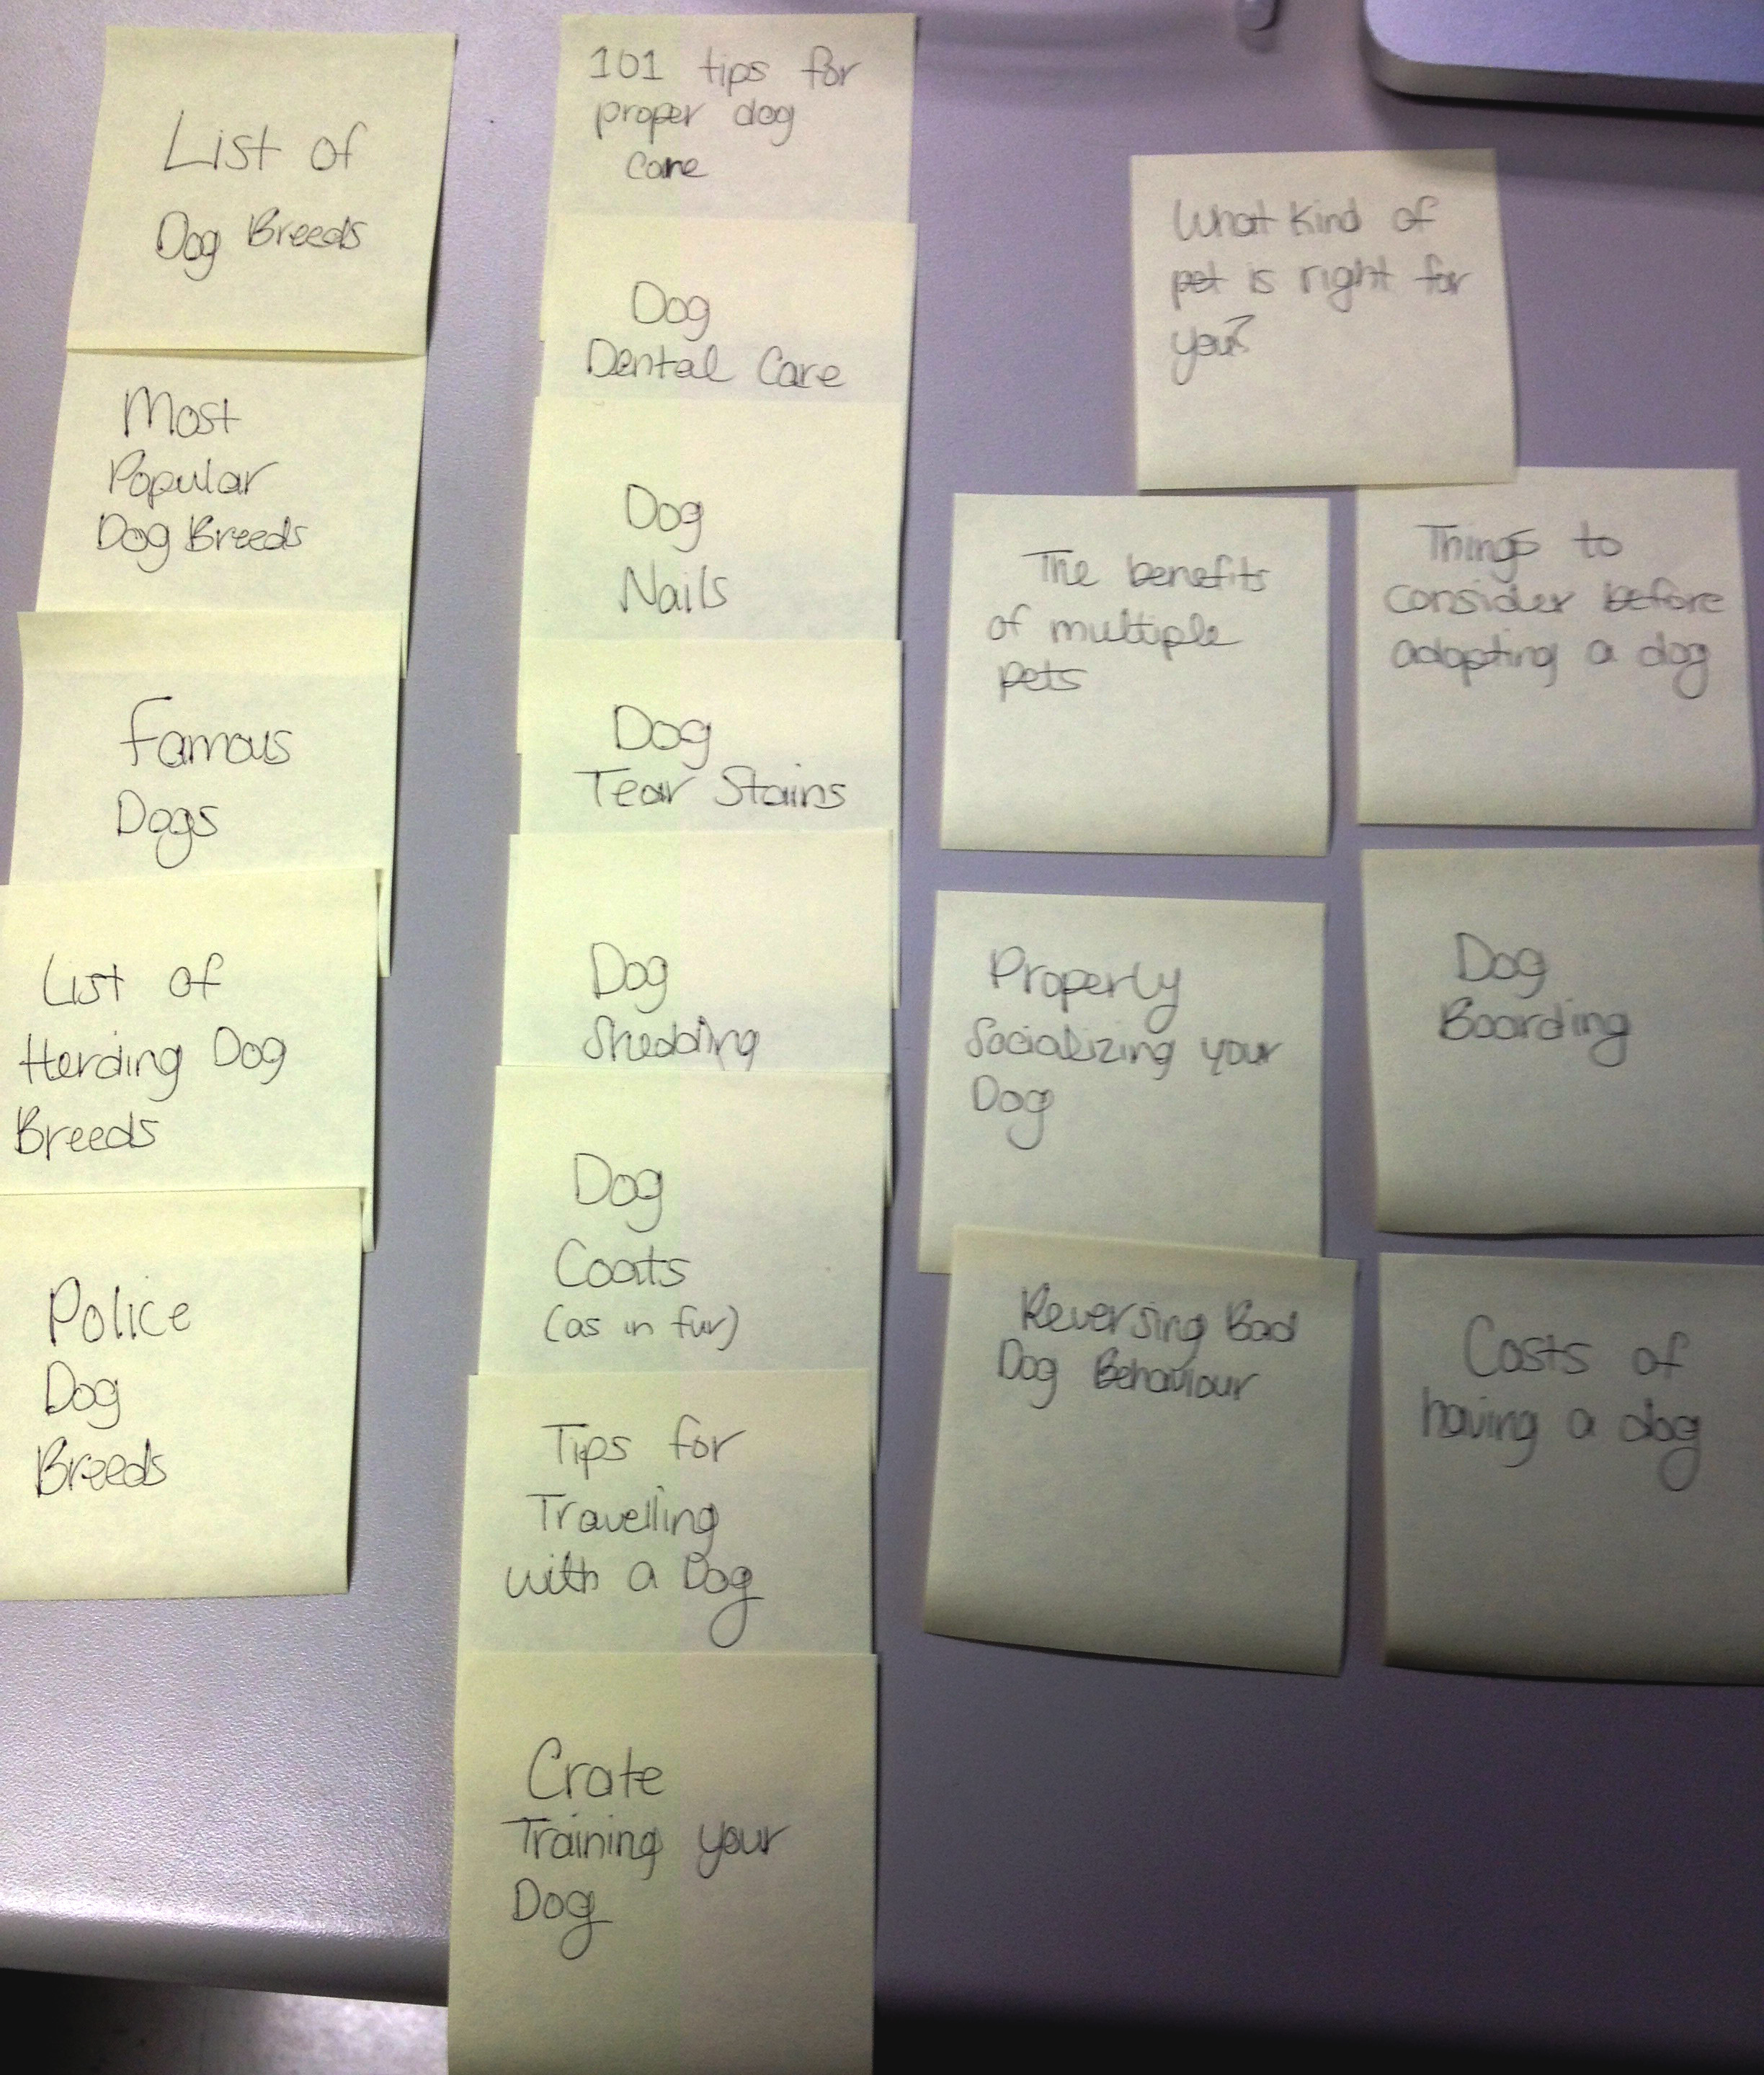 List of
Dog Breeds
Most
Popular
Dog Breeds
Famous
Dogs
List of
Herding Dog
Breeds
Police
Dog
Breeds
101 tips for
proper dog
care
Dog
Dental Care
Dog
Nails
Dog
Tear Stains
Dog
Shedding
Dog
Coats
(as in fur)
Tips for
Travelling
with a Dog
Crate
Training your
Dog
What kind of
pet is right for
you?
The benefits
of multiple
pets
Things to
consider before
adopting a dog
Properly
Socializing your
Dog
Dog
Boarding
Reversing Bad
Dog Behaviour
Costs of
having a dog